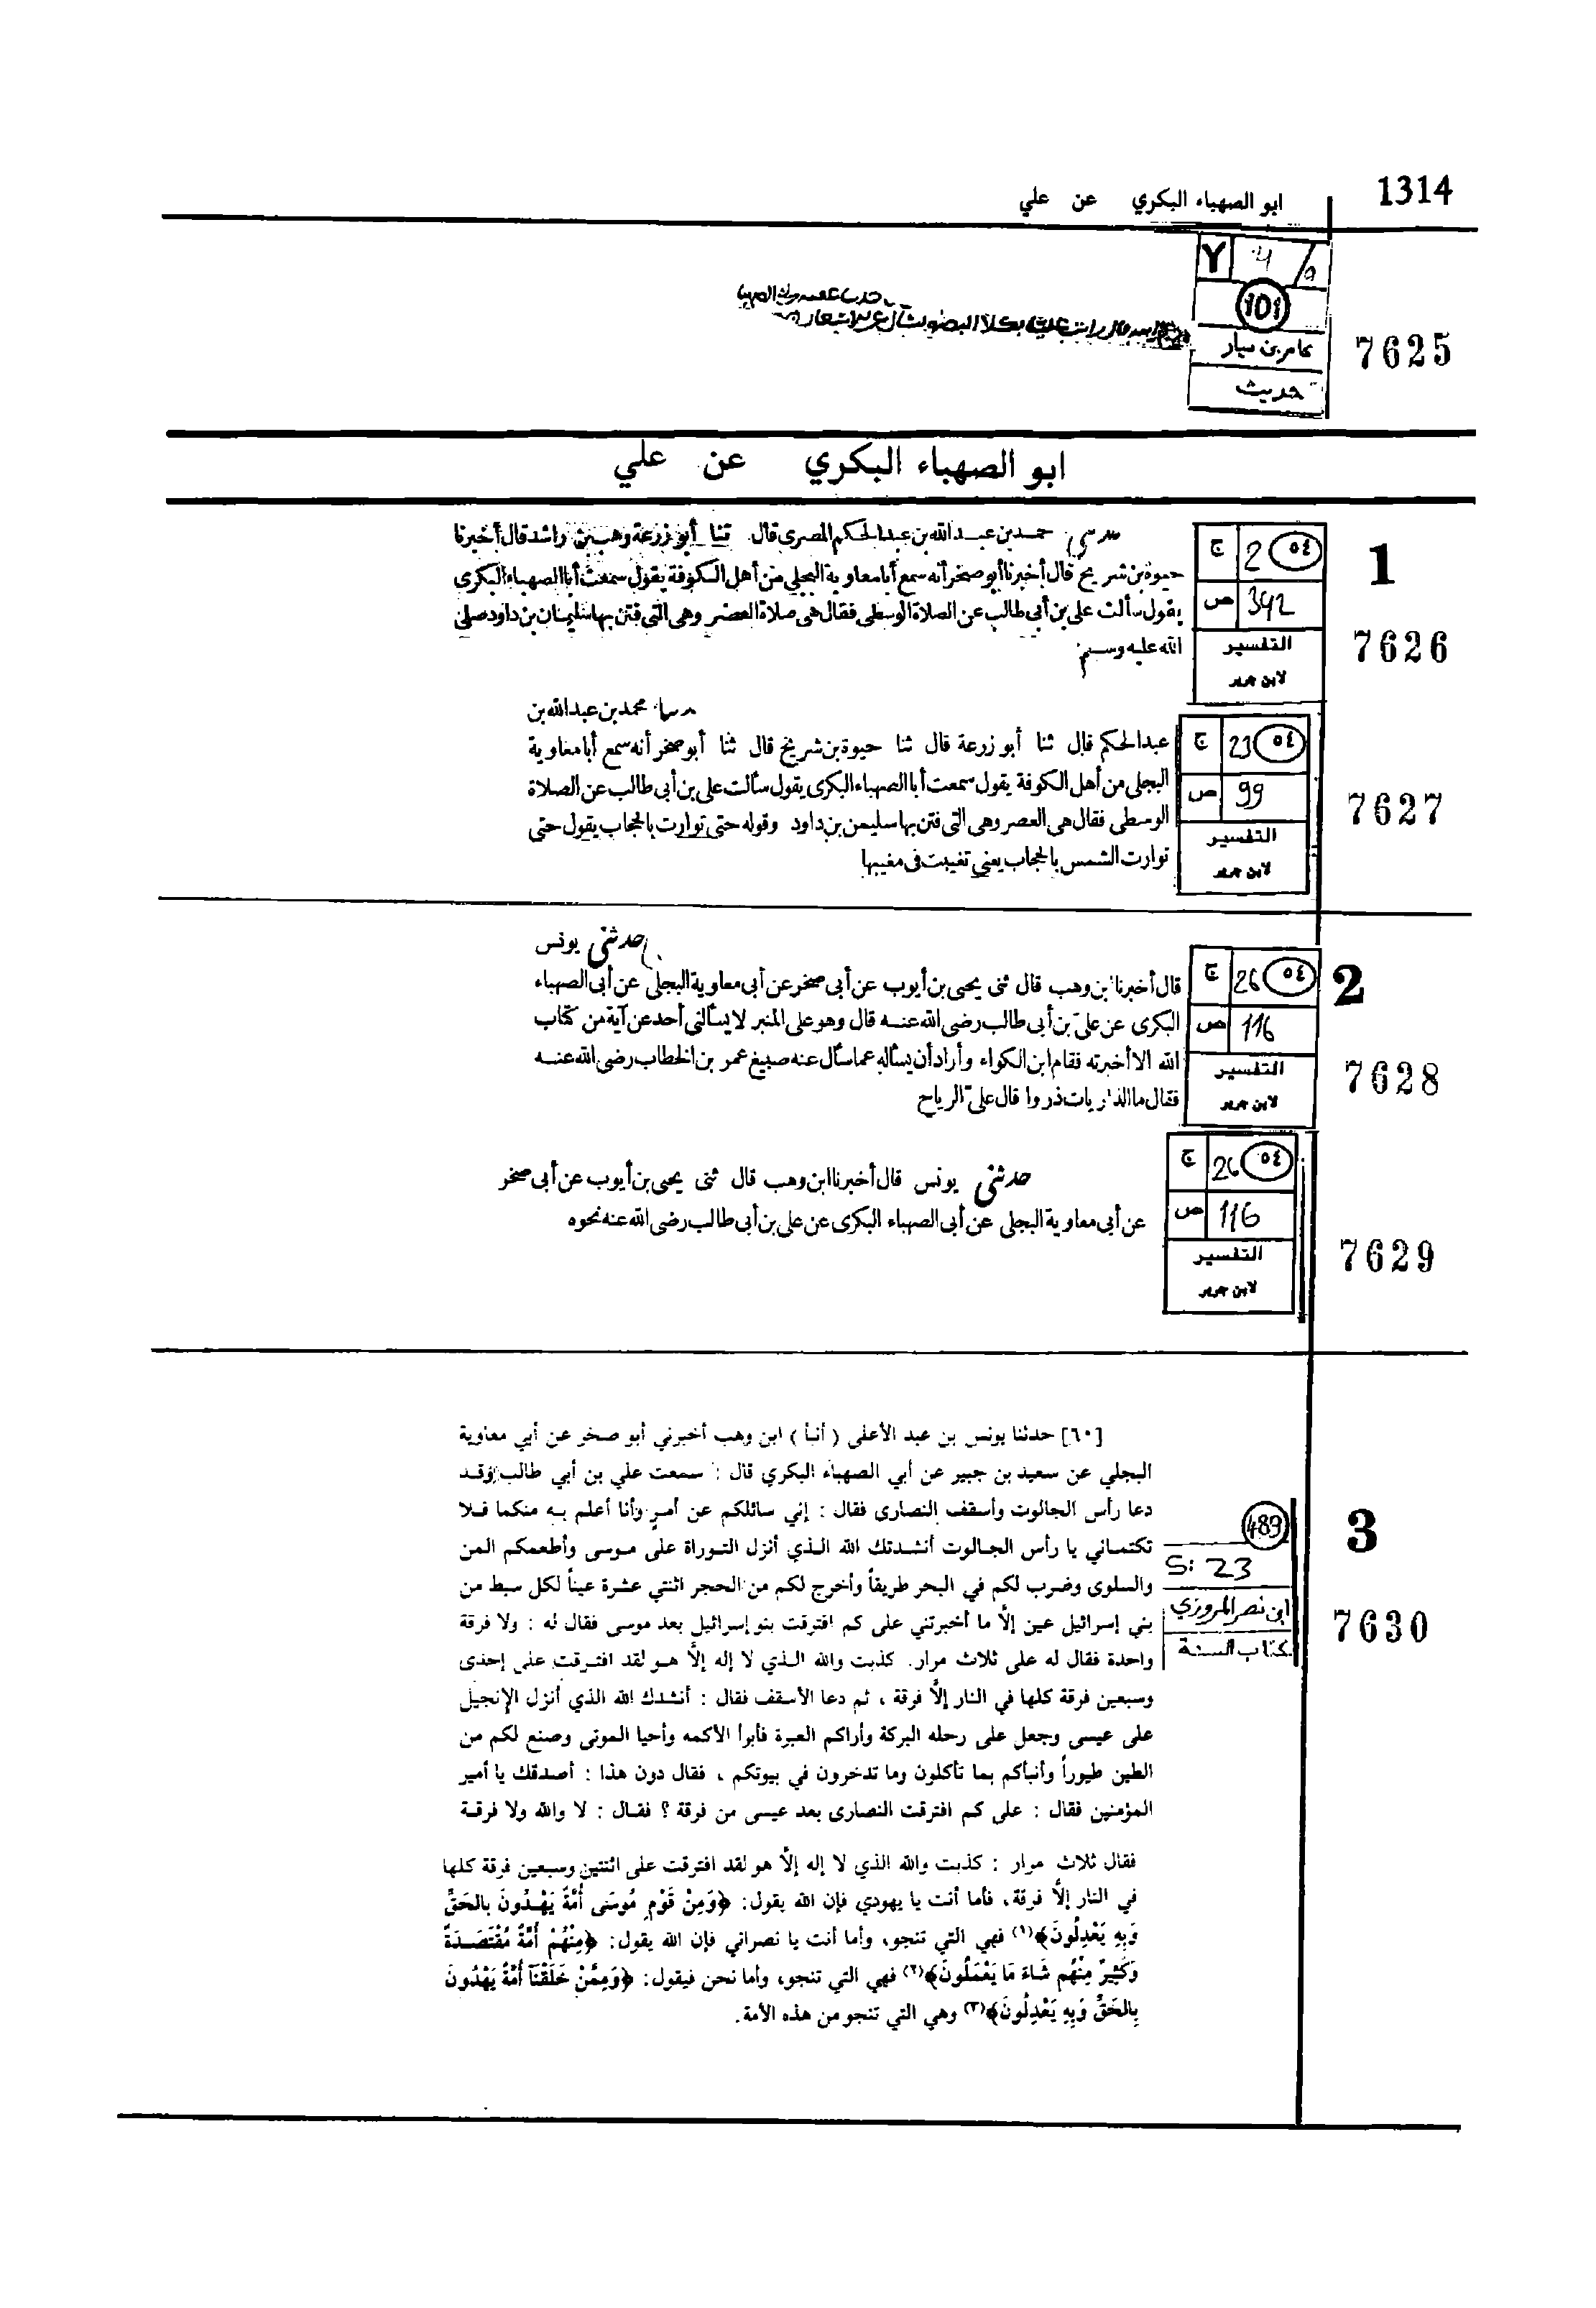 1314
ابو الصهباء البكري عن علي
101
عامر بن سيار
حديث
7625
ابو الصهباء البكري عن علي
1
7626
ج 2 ٥٤
ص 342
التفسير
لابن جرير
محمد بن عبد الله بن عبد الحكم المصرى قال ثنا أبو زرعة وهب بن راشد قال أخبرنا
حيوة بن شريح قال أخبرنا أبو صخر أنه سمع أبا معاوية البجلى من أهل الكوفة يقول سمعت أبا الصهباء البكرى
يقول سألت على بن أبى طالب عن الصلاة الوسطى فقال هى صلاة العصر وهى التى فتن بها سليمان بن داود صلى
الله عليه وسلم
7627
ج 23 ٥٤
ص 99
التفسير
لابن جرير
محمد بن عبد الله بن
عبد الحكم قال ثنا أبو زرعة قال ثنا حيوة بن شريح قال ثنا أبو صخر أنه سمع أبا معاوية
البجلى من أهل الكوفة يقول سمعت أبا الصهباء البكرى يقول سألت على بن أبى طالب عن الصلاة
الوسطى فقال هى العصر وهى التى فتن بها سليمن بن داود وقوله حتى توارت بالحجاب يقول حتى
توارت الشمس بالحجاب يعنى تغيبت فى مغيبها
2
7628
ج 26 ٥٤
ص 116
التفسير
لابن جرير
حدثنى يونس
قال أخبرنا ابن وهب قال ثنى يحيى بن أيوب عن أبى صخر عن أبى معاوية البجلى عن أبى الصهباء
البكرى عن علىّ بن أبى طالب رضى الله عنه قال وهو على المنبر لا يسألنى أحد عن آية من كتاب
الله الا أخبرته فقام ابن الكواء وأراد أن يسأله عما سأل عنه صبيغ عمر بن الخطاب رضى الله عنه
فقال ما الذاريات ذروا قال علىّ الرياح
7629
ج 26 ٥٤
ص 116
التفسير
لابن جرير
حدثنى يونس قال أخبرنا ابن وهب قال ثنى يحيى بن أيوب عن أبى صخر
عن أبى معاوية البجلى عن أبى الصهباء البكرى عن على بن أبى طالب رضى الله عنه نحوه
3
7630
489
S: 23
ابن نصر المروزي
كتاب السنة
[٦٠] حدثنا يونس بن عبد الأعلى ( أنبأ ) ابن وهب أخبرني أبو صخر عن أبي معاوية
البجلي عن سعيد بن جبير عن أبي الصهباء البكري قال : سمعت علي بن أبي طالب وقد
دعا رأس الجالوت وأسقف النصارى فقال : إني سائلكم عن أمرٍ وأنا أعلم به منكما فلا
تكتماني يا رأس الجالوت أنشدتك الله الذي أنزل التوراة على موسى وأطعمكم المن
والسلوى وضرب لكم في البحر طريقاً وأخرج لكم من الحجر اثنتي عشرة عيناً لكل سبط من
بني إسرائيل عين إلاَّ ما أخبرتني على كم افترقت بنو إسرائيل بعد موسى فقال له : ولا فرقة
واحدة فقال له على ثلاث مرار. كذبت والله الذي لا إله إلاَّ هو لقد افترقت على إحدى
وسبعين فرقة كلها في النار إلاَّ فرقة ، ثم دعا الأسقف فقال : أنشدك الله الذي أنزل الإنجيل
على عيسى وجعل على رحله البركة وأراكم العبرة فأبرأ الأكمه وأحيا الموتى وصنع لكم من
الطين طيوراً وأنبأكم بما تأكلون وما تدخرون في بيوتكم ، فقال دون هذا : أصدقك يا أمير
المؤمنين فقال : على كم افترقت النصارى بعد عيسى من فرقة ؟ فقال : لا والله ولا فرقة
فقال ثلاث مرار : كذبت والله الذي لا إله إلاَّ هو لقد افترقت على اثنتين وسبعين فرقة كلها
في النار إلاَّ فرقة، فأما أنت يا يهودي فإن الله يقول: ﴿وَمِنْ قَوْمِ مُوسَى أُمَّةٌ يَهْدُونَ بالحَقِّ
وَبِهِ يَعْدِلُونَ﴾(١) فهي التي تنجو، وأما أنت يا نصراني فإن الله يقول: ﴿مِنْهُمْ أُمَّةٌ مُقْتَصِدَةٌ
وَكَثِيرٌ مِنْهُم سَاءَ مَا يَعْمَلُونَ﴾(٢) فهي التي تنجو، وأما نحن فيقول: ﴿وَمِمَّنْ خَلَقْنَا أُمَّةٌ يَهْدُونَ
بِالحَقِّ وَبِهِ يَعْدِلُونَ﴾(٣) وهي التي تنجو من هذه الأمة.